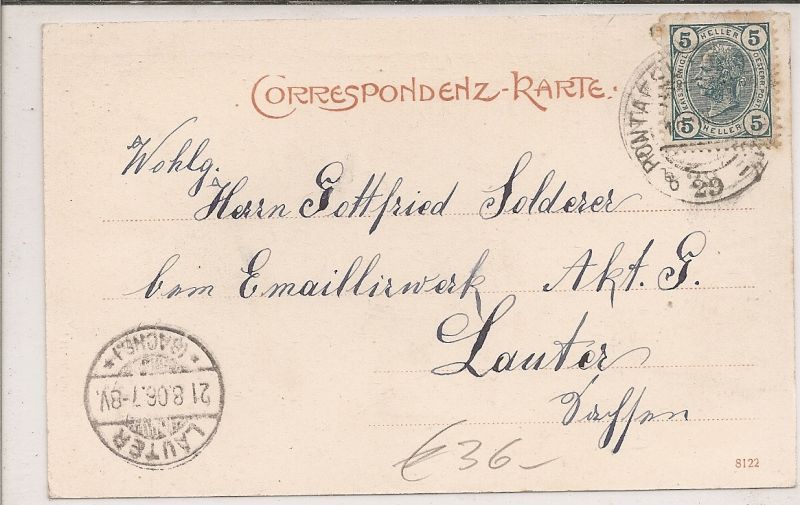 CORRESPONDENZ-KARTE.
5 HELLER 5
5 HELLER 5
PONTAFEL
29
Wohlg.
Herrn Gottfried Solderer
beim Emaillirwerk Akt. G.
Lauter
Sachsen
LAUTER
21.8.06.7-8V.
* (SACHS.) *
€ 36-
8122